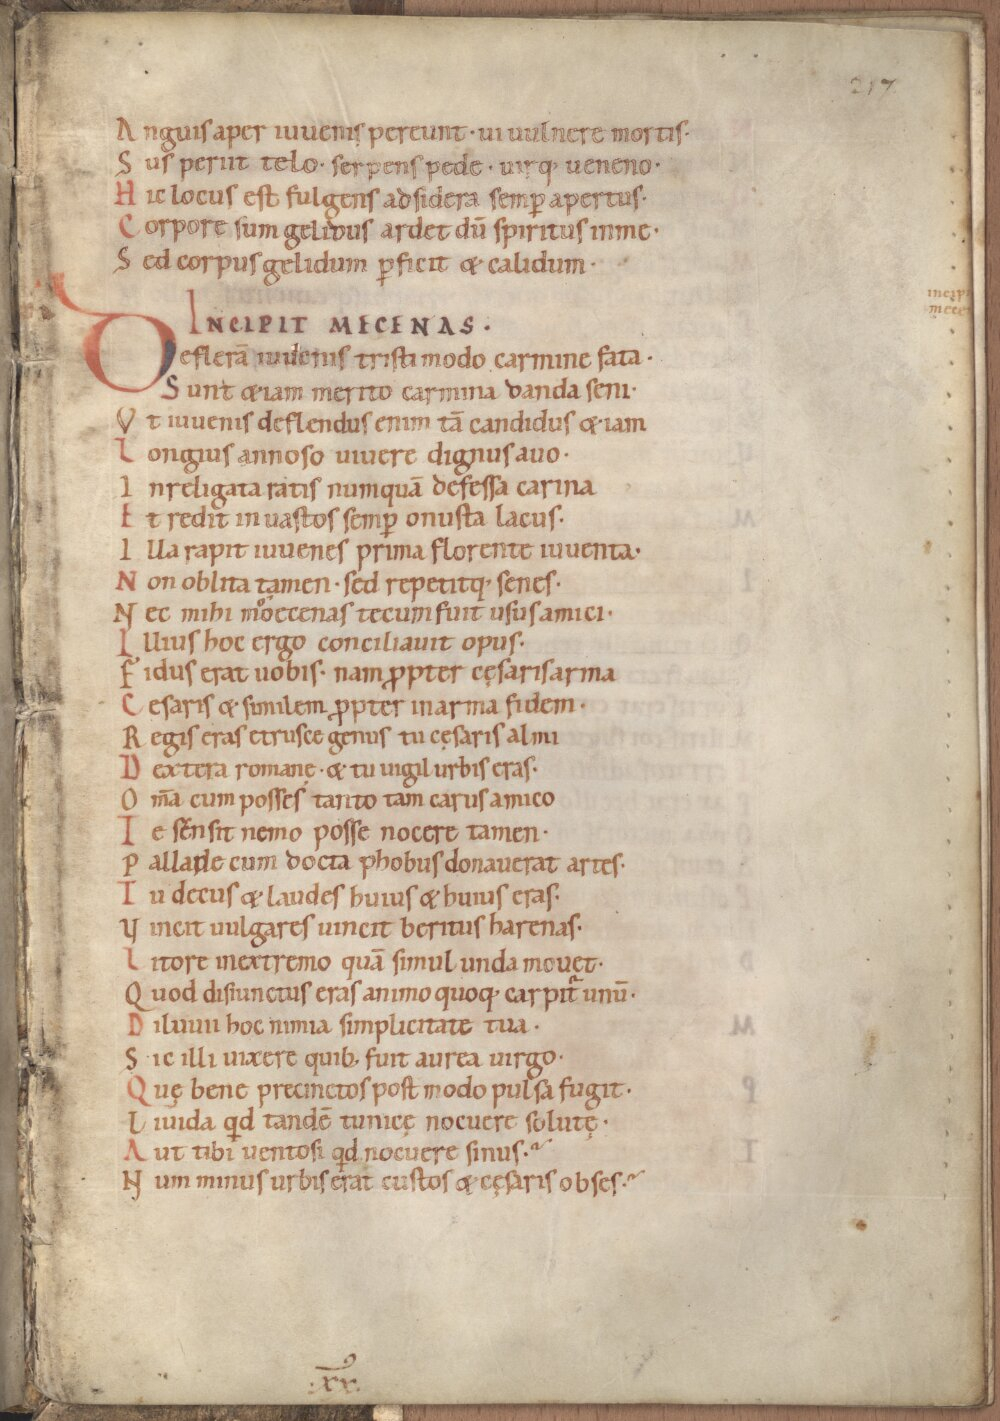 217
Anguis aper iuuenis pereunt · ui uulnere mortis·
Sus periit telo · serpens pede · uirq; ueneno·
Hic locus est fulgens ad sidera semp̄ apertus·
Corpore sum gelidus ardet dū spiritus inme·
Sed corpus gelidum ꝑficit & calidum·
INCIPIT MECENAS·
incip
mecen
Deflerā iuuenis tristi modo carmine fata·
Sunt &iam merito carmina danda seni·
Vt iuuenis deflendus enim tā candidus &iam
Longius annoso uiuere dignus auo·
Inreligata ratis numquā defessa carina
Et redit in uastos semp̄ onusta lacus·
Illa rapit iuuenes prima florente iuuenta·
Non oblita tamen · sed repetitq; senes·
Nec mihi moecenas tecum fuit usus amici·
Illius hoc ergo conciliauit opus·
Fidus erat uobis· nam ꝓpter cęsaris arma
Cesaris & similem ꝓpter inarma fidem·
Regis eras etrusce genus tu cęsaris almi
Dextera romanę · & tu uigil urbis eras·
Om̄a cum posses tanto tam carus amico
Te sensit nemo posse nocere tamen·
Pallade cum docta phobus donauerat artes·
Tu decus & laudes huius & huius eras·
Vincit uulgares uincit beritus harenas·
Litore inextremo quā simul unda mouet·
Quod disiunctus eras animo quoq; carpit̄ unū·
Diluuii hoc nimia simplicitate tua·
Sic illi uixere quib; fuit aurea uirgo·
Quę bene precinctos post modo pulsa fugit·
Liuida qd̄ tandē tunicę nocuere solutę·
Aut tibi uentosi qd̄ nocuere sinus·
Num minus urbis erat custos & cęsaris obses·
·xx·